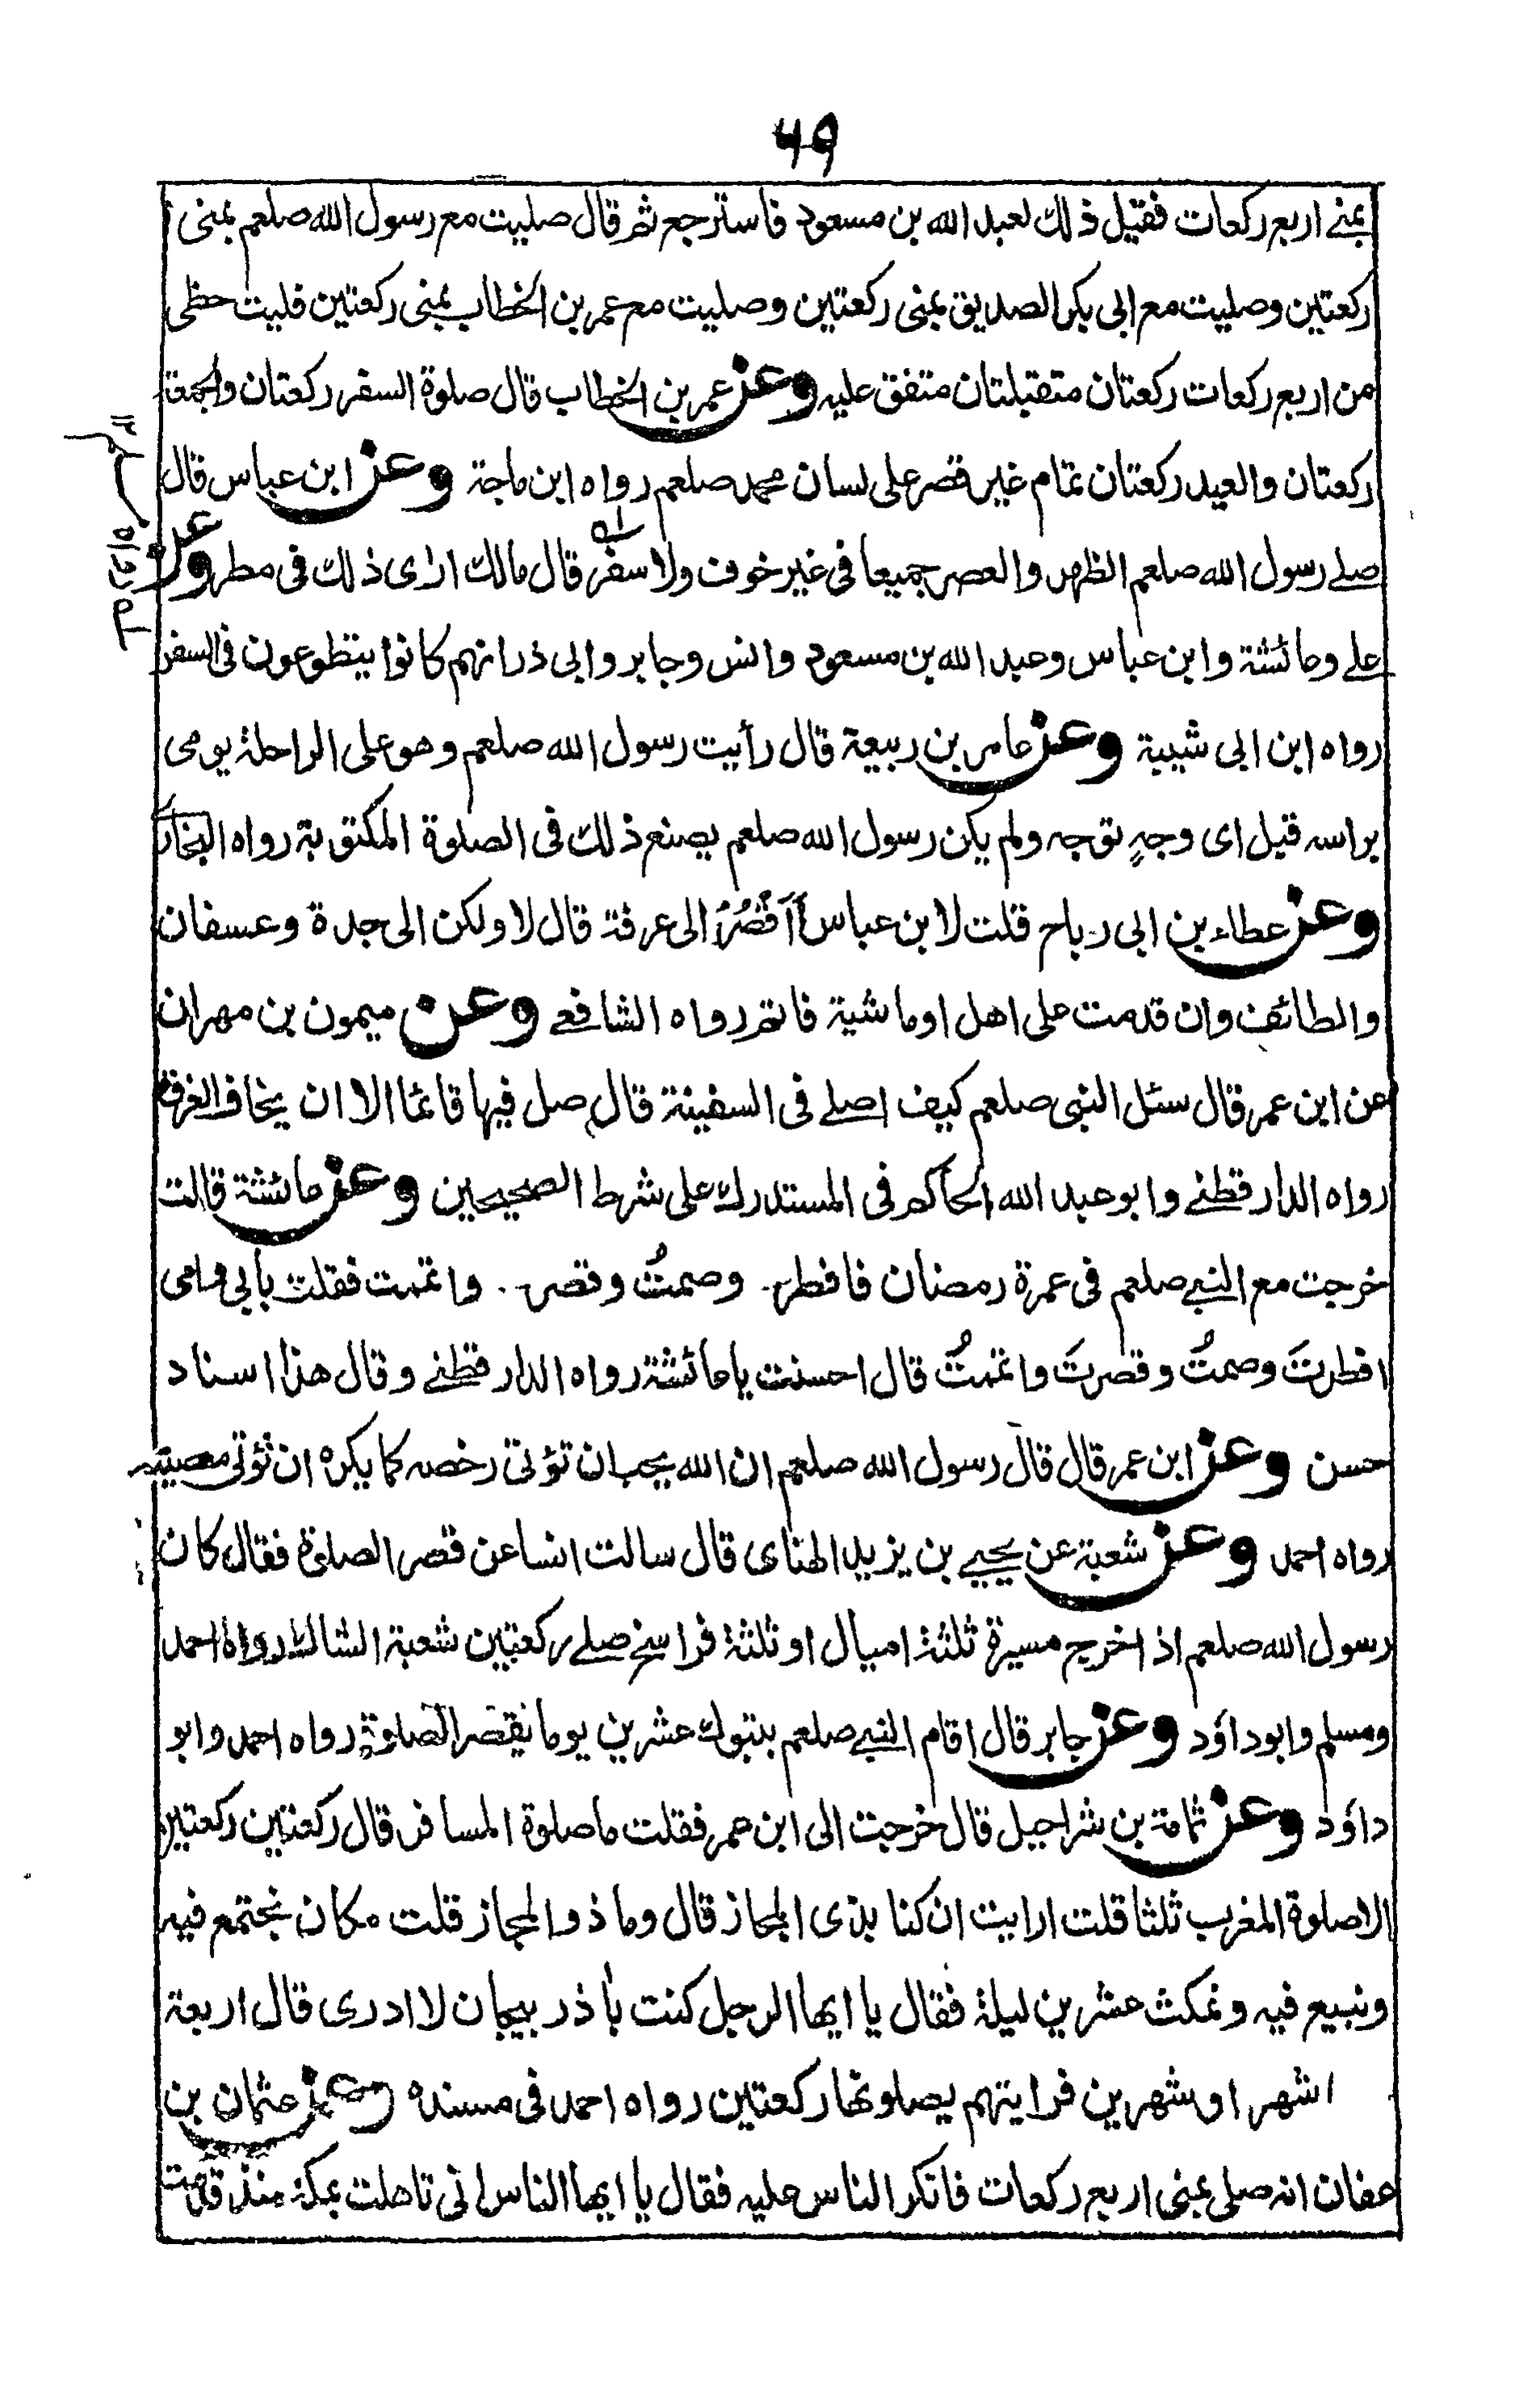 ۶۹
بمنے اربع ركعات فقيل ذلك لعبد الله بن مسعود فاسترجع ثم قال صليت مع رسول الله صلعم بمنى
ركعتين وصليت مع ابى بكر الصديق بمنى ركعتين وصليت مع عمر بن الخطاب بمنى ركعتين فليت حظى
من اربع ركعات ركعتان متقبلتان متفق عليه وعن عمر بن الخطاب قال صلوة السفر ركعتان والجمعة
ركعتان والعيد ركعتان تمام غير قصر على لسان محمد صلعم رواه ابن ماجة وعن ابن عباس قال
صلے رسول الله صلعم الظهر والعصر جميعا فى غير خوف ولا سفر قال مالك ارى ذلك فى مطر وعن
علے وعائشة وابن عباس وعبد الله بن مسعود وانس وجابر وابى ذر انهم كانوا يتطوعون فى السفر
رواه ابن ابى شيبة وعن عامر بن ربيعة قال رأيت رسول الله صلعم وهو على الراحلة يومى
براسه قبل اى وجهٍ توجه ولم يكن رسول الله صلعم يصنع ذلك فى الصلوة المكتوبة رواه البخارى
وعن عطاء بن ابى رباح قلت لابن عباس أَأَقْصُرُ الى عرفة قال لا ولكن الى جدة وعسفان
والطائف وان قدمت على اهل اوماشية فاتم رواه الشافعے وعن ميمون بن مهران
عن ابن عمر قال سئل النبى صلعم كيف اصلے فى السفينة قال صل فيها قائما الا ان يخاف الغرق
رواه الدارقطنے وابو عبد الله الحاكم فى المستدرك على شرط الصحيحين وعن عائشة قالت
خرجت مع النبے صلعم فى عمرة رمضان فافطر وصمتُ وقصر واتممت فقلت بابى وامى
افطرتَ وصمتُ وقصرتَ واتممتُ قال احسنت يا عائشة رواه الدارقطنے وقال هذا اسناد
حسن وعن ابن عمر قال قال رسول الله صلعم ان الله يحب ان تؤتى رخصه كما يكره ان تؤتى معصيته
رواه احمد وعن شعبة عن يحيے بن يزيد الهنائ قال سالت انسا عن قصر الصلوة فقال كان
رسول الله صلعم اذ اخرج مسيرة ثلثة اميال او ثلثة فراسخ صلے ركعتين شعبة الشاك رواه احمد
ومسلم وابوداؤد وعن جابر قال اقام النبے صلعم بتبوك عشرين يوما يقصر الصلوة رواه احمد وابو
داؤد وعن ثمامة بن شراحيل قال خرجت الى ابن عمر فقلت ما صلوة المسافر قال ركعتين ركعتين
الا صلوة المغرب ثلثا قلت ارايت ان كنا بذى المجاز قال وما ذوالمجاز قلت مكان نجتمع فيه
ونبيع فيه ونمكث عشرين ليلة فقال يا ايها الرجل كنت باذربيجان لا ادرى قال اربعة
اشهر او شهرين فرايتهم يصلونها ركعتين رواه احمد فى مسنده وعن عثمان بن
عفان انه صلى بمنى اربع ركعات فانكر الناس عليه فقال يا ايها الناس انى تاهلت بمكة منذ قدمت